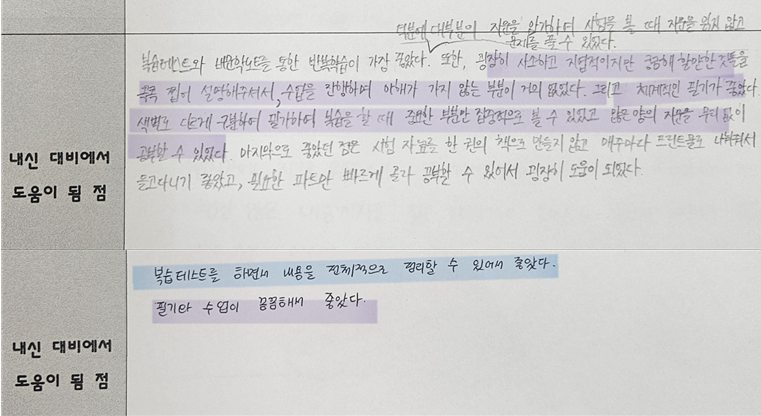 덕분에 대부분이 지문을 암기하며 시험을 볼 때 지문을 읽지 않고
문제를 풀 수 있었다.
복습테스트와 내면화노트를 통한 반복학습이 가장 좋았다. 또한, 굉장히 사소하고 지엽적이지만 궁금해 할만한 것들을
콕콕 집어 설명해주셔서, 수업을 진행하며 이해가 가지 않는 부분이 거의 없었다. 그리고 체계적인 필기가 좋았다.
색펜도 다르게 구분하여 필기하여 복습을 할 때 중요한 부분만 집중적으로 볼 수 있었고 많은 양의 지문을 무리 없이
공부할 수 있었다. 마지막으로 좋았던 점은 시험 자료를 한 권의 책으로 만들지 않고 매주마다 프린트물로 나눠줘서
들고다니기 좋았고, 필요한 파트만 빠르게 골라 공부할 수 있어서 굉장히 도움이 되었다.
내신 대비에서
도움이 됨 점
복습테스트를 하면서 내용을 전체적으로 정리할 수 있어서 좋았다.
필기와 수업이 꼼꼼해서 좋았다.
내신 대비에서
도움이 됨 점